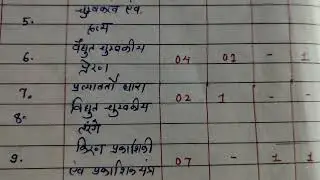 चुम्बकत्व एवं
5.
द्रव्य
6. वैद्युत चुम्बकीय 04 01 - 1
प्रेरण
7. प्रत्यावर्ती धारा 02 1 - -
8. विद्युत चुम्बकीय
तरंगें
9. किरण प्रकाशिकी 07 - 1 1
एवं प्रकाशिक यंत्र